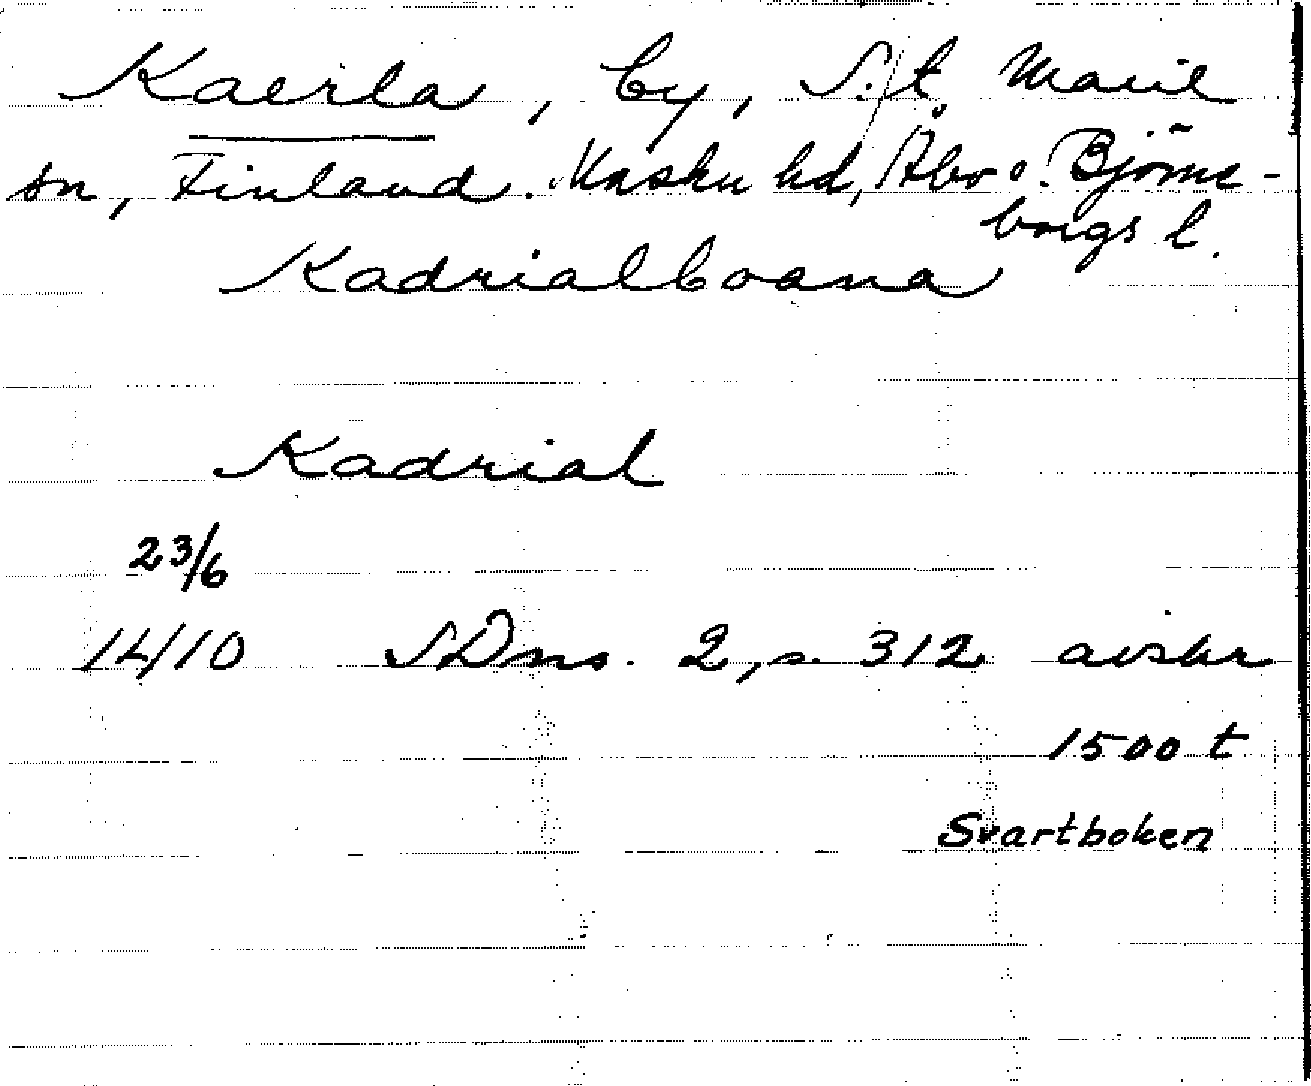 Kaerla, by, S:t Marie
sn, Finland. Masku hd, Åbo o. Björne-
borgs l.
Kadrialboana
Kadrial
23/6
14/10 SDns. 2, s. 312 avskr
1500 t
Svartboken